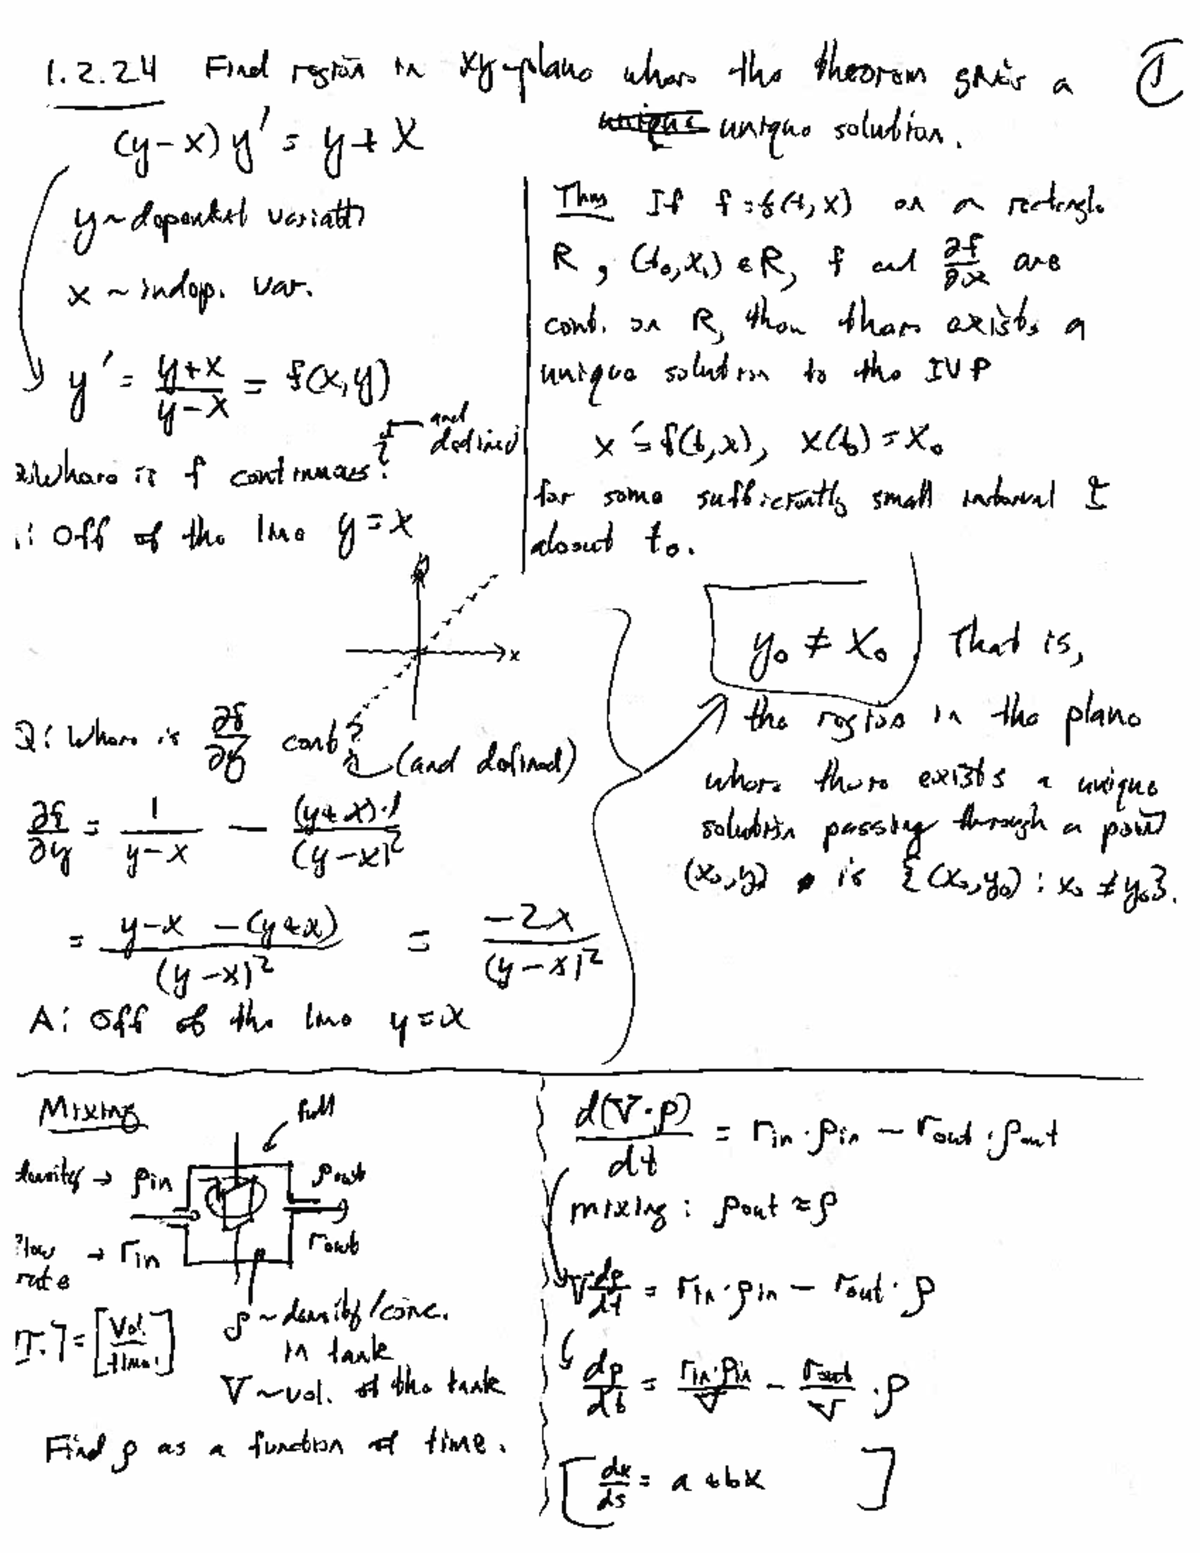 1.2.24 Find region in xy-plane where the theorem gives a
unique solution.
①
(y-x) y' = y + x
y ~ dependent variable
x ~ indep. var.
y' = (y+x)/(y-x) = f(x,y)
and defined
Where is f continuous?
: Off of the line y = x
x
Q: Where is ∂f/∂y cont?
(and defined)
∂f/∂y = 1/(y-x) - (y+x)·1/(y-x)²
= (y-x - (y+x))/(y-x)² = -2x/(y-x)²
A: Off of the line y = x
Thm If f = f(t,x) on a rectangle
R, (t₀,x₀) ∈ R, f and ∂f/∂x are
cont. on R, then there exists a
unique solution to the IVP
x' = f(t,x), x(t₀) = x₀
for some sufficiently small interval I
about t₀.
y₀ ≠ x₀. That is,
the region in the plane
where there exists a unique
solution passing through a point
(x₀,y₀) is {(x₀,y₀) : x₀ ≠ y₀}.
Mixing
full
density → ρin
ρout
flow rate → rin
rout
[r.] = [Vol./time]
ρ ~ density/conc.
in tank
V ~ vol. of the tank
Find ρ as a function of time.
d(V·ρ)/dt = rin·ρin - rout·ρout
mixing: ρout ≈ ρ
V dρ/dt = rin·ρin - rout·ρ
dρ/dt = rin·ρin/V - rout/V · ρ
[dx/ds = a + bx]